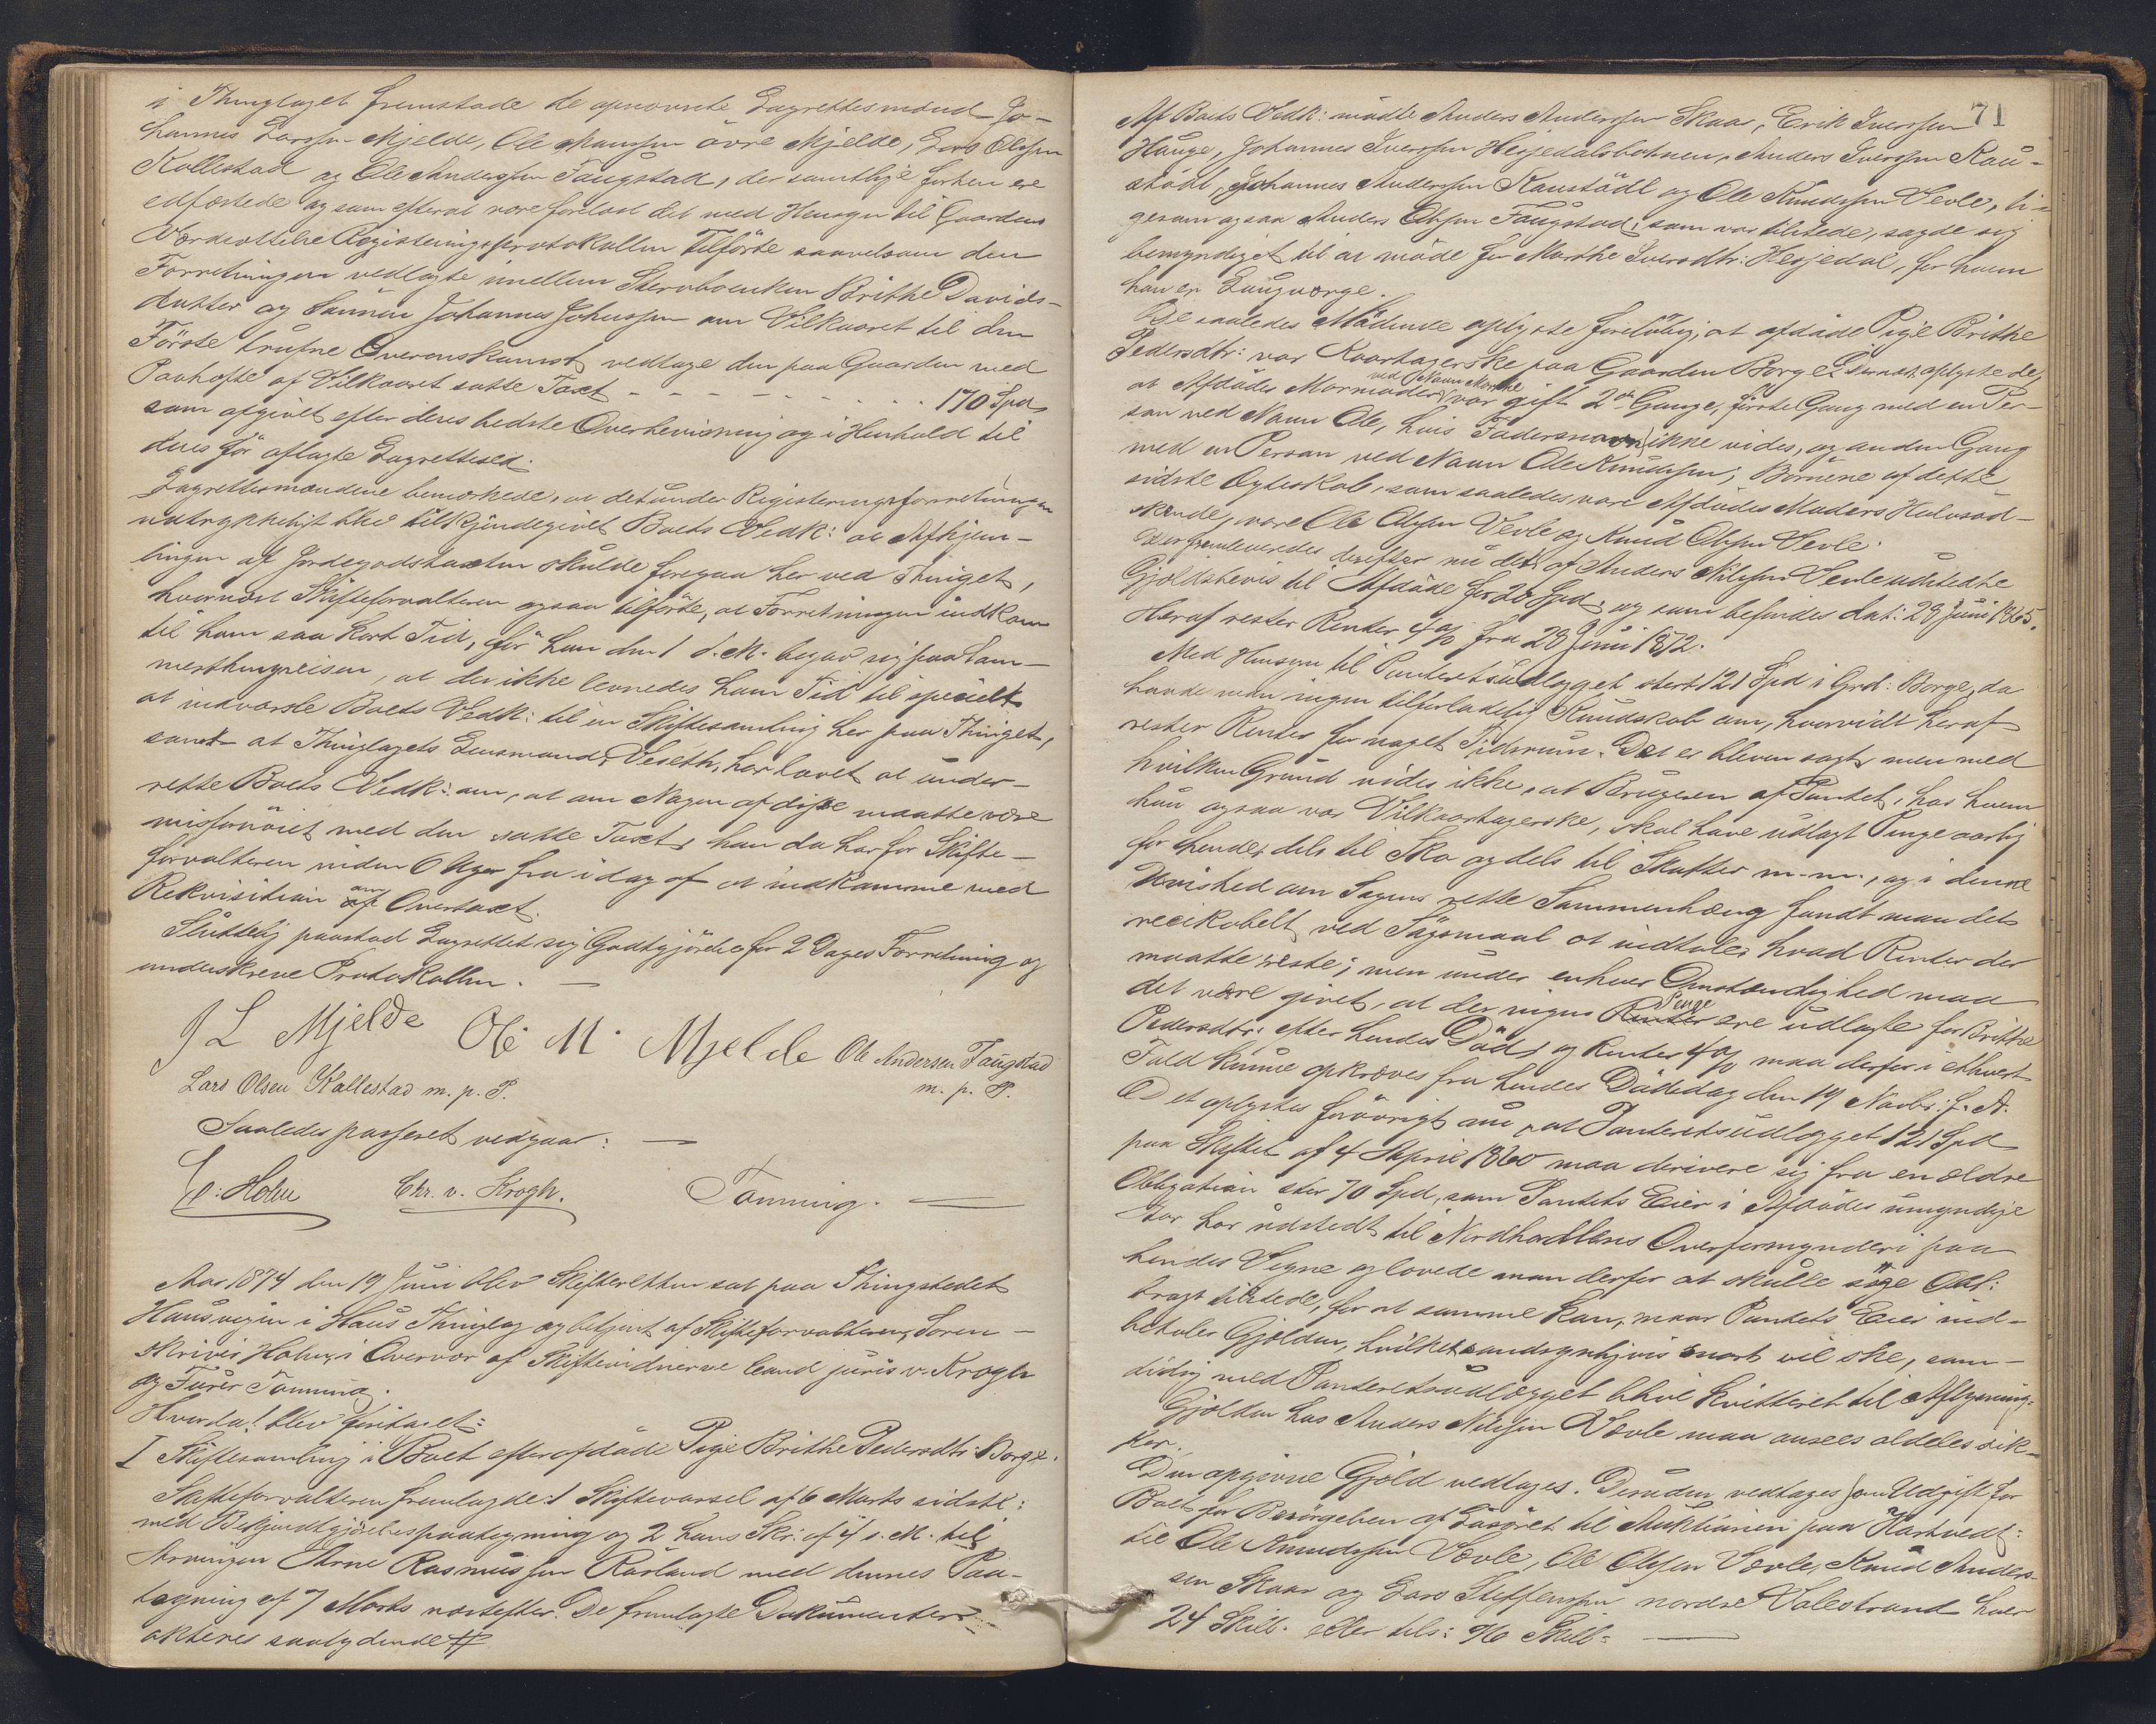 i Thinglaget fremstode de opnævnte Lagrettesmænd Jo-
hannes Larssen Mjelde, Ole Monssen övre Mjelde, Lars Olssen
Kallestad og Ole Anderssen Faugstad, der samtlige forhen ere
edfæstede og som efterat være forelæst det med Hensyn til Gaardens
Værdsættelse Registreringsprotokollen tilförte saavelsom den
Forretningen vedlagte imellem Stervboenken Brithe Davids-
datter og Sönnen Johannes Johnssen om Vilkaaret til den
Förste trufne Overenskomst vedtoge den paa Gaarden med
Paahefte af Vilkaaret satte Taxt - - - - - - - - - - 170 Spd,
som afgivet efter deres bedste Overbeviisning og i Henhold til
deres för aflagte Lagrettesed.
Lagrettesmændene bemærkede, at det under Registreringsforretningen
udtrykkeligt blev tilkjendegivet Boets Vedk: at Afhjem-
lingen af Jordegodstaxten skulde foregaa her ved Thinget,
hvornæst Skifteforvalteren ogsaa tilförte, at Forretningen indkom
til ham saa kort Tid, för han den 1 d. M. begav sig paa Som-
merthingreisen, at der ikke levnedes ham Tid til specielt
at indvarsle Boets Vedk: til en Skiftesamling her paa Thinget,
samt at Thinglagets Lensmand, Veseth, har lovet at under-
rette Boets Vedk: om, at om Nogen af disse maatte være
misfornöiet med den satte Taxt, han da har for Skifte-
forvalteren inden 6 Uger fra i dag af at indkomme med
Rekvisition om Overtaxt.
Sluttelig paastod Lagrettet sig Godtgjörelse for 2 Dages Forretning og
underskreve Protokollen. —
J L Mjelde Ole M. Mjelde Ole Andersen Faugstad
Lars Olsen Kallestad m. p. P. m. p. P.
Saaledes passeret vedgaar: —
C: Holm Chr. v. Krogh. Tönning. —
Aar 1874 den 19 Juni blev Skifteretten sat paa Thingstedet
Hausvigen i Haus Thinglag og betjent af Skifteforvalteren, Soren-
skriver Holm, i Overvær af Skiftevidnerne Cand juris v. Krogh
og Furer Tönning.
Hvorda! blev foretaget:
I Skiftesamling i Boet efter afdöde Pige Brithe Pedersdtr: Borge.
Skifteforvalteren fremlagde: 1 Skiftevarsel af 6 Marts sidstl:
med Bekjendtgjörelsespaategning og 2 hans Skr: af 4 s. M. til
Arvingen Arne Rasmussen Rösland med dennes Paa-
tegning af 7 Marts næstefter. De fremlagte Dokumenter
akteres saalydende #
71
Af Boets Vedk: mödte Anders Anderssen Skaar, Erik Iverssen
Hauge, Johannes Iverssen Hesjedalsbotnen, Anders Iverssen Rau-
städt, Johannes Anderssen Raustädt og Ole Knudssen Vevle, li-
gesom ogsaa Anders Olssen Faugstad, som var tilstede, sagde sig
bemyndiget til at möde for Marthe Iversdtr: Hesjedal, for hvem
han er Laugværge.
De saaledes Mödende oplyste foreløbig, at afdöde Pige Brithe
Pedersdtr: var Kaartagerske paa Gaarden Borge. Dernæst oplyste de,
ved Navn Marthe
at Afdödes Mormoder var gift 2de Gange, förste Gang med en Per-
son ved Navn Ole, hvis Fadersnavn ikke vides, og anden Gang
med en Person ved Navn Ole Knudssen; Börnene af dette
sidste Ægteskab, som saaledes vare Afdödes Moders Halvsöd-
skende, vare Ole Olssen Vevle og Knud Olssen Vevle.
Der fremleveredes derefter nu det af Anders Nilssen Vevle udstedte
Gjeldsbevis til Afdöde for 20 Spd. og som befindes dat: 28 Juni 1865.
Heraf rester Renter 4 % fra 28 Juni 1872.
Med Hensyn til Panteretsudlægget stort 121 Spd i Grd: Borge, da
havde man ingen tilforladelig Kundskab om, hvorvidt heraf
rester Renter for noget Tidsrum. Det er bleven sagt, men med
hvilken Grund vides ikke, at Brugeren af Pantet, hos hvem
hun ogsaa var Vilkaartagerske, skal have udlagt Penge aarlig
for hende, dels til Sko og dels til Skatter m.m., og i denne
Uvished om Sagens rette Sammenhæng fandt man det
ved Sögsmaal at indtale, hvad Renter der
maatte reste; men under enhver Omstændighed maa
det være givet, at der ingen Penge ere udlagte for Brithe
Pedersdtr: efter hendes Död, og Renter 4 % maa derfor i ethvert
Fald kunne opkræves fra hendes Dödsdag den 19 Novbr: f. A.
Det oplystes forövrigt nu, at Panteretsudlægget 121 Spd
paa Skiftet af 4 April 1860 maa derivere sig fra en ældre
Obligation stor 70 Spd, som Pantets Eier i Afdödes umyndige
Aar har udstedt til Nordhordlens Overformynderi paa
hendes Vegne og lovede man derfor at skulle söge Obl:
bragt tilstede, for at samme kan, naar Pantets Eier ind-
betaler Gjelden, hvilket sandsynligvis snart vil ske, sam-
tidig med Panteretsudlægget blive kvitteret til Aflysning.
Gjelden hos Anders Nilssen Vevle maa ansees aldeles sik-
ker.
Den opgivne Gjeld vedtages. Desuden vedtages som Udgift for
Boet for Besörgelsen af Lösöret til Auktionen paa Hartvedt:
til Ole Amundssen Vevle, Ole Olssen Vevle, Knud Anders-
sen Skaar og Lars Steffenssen nordre Valestrand hver
24 Skill. eller tils: 96 Skill: —